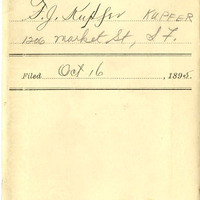 F. J. Kupfer KUPFER
1206 Market St, S F.
Filed Oct 16, 1895.